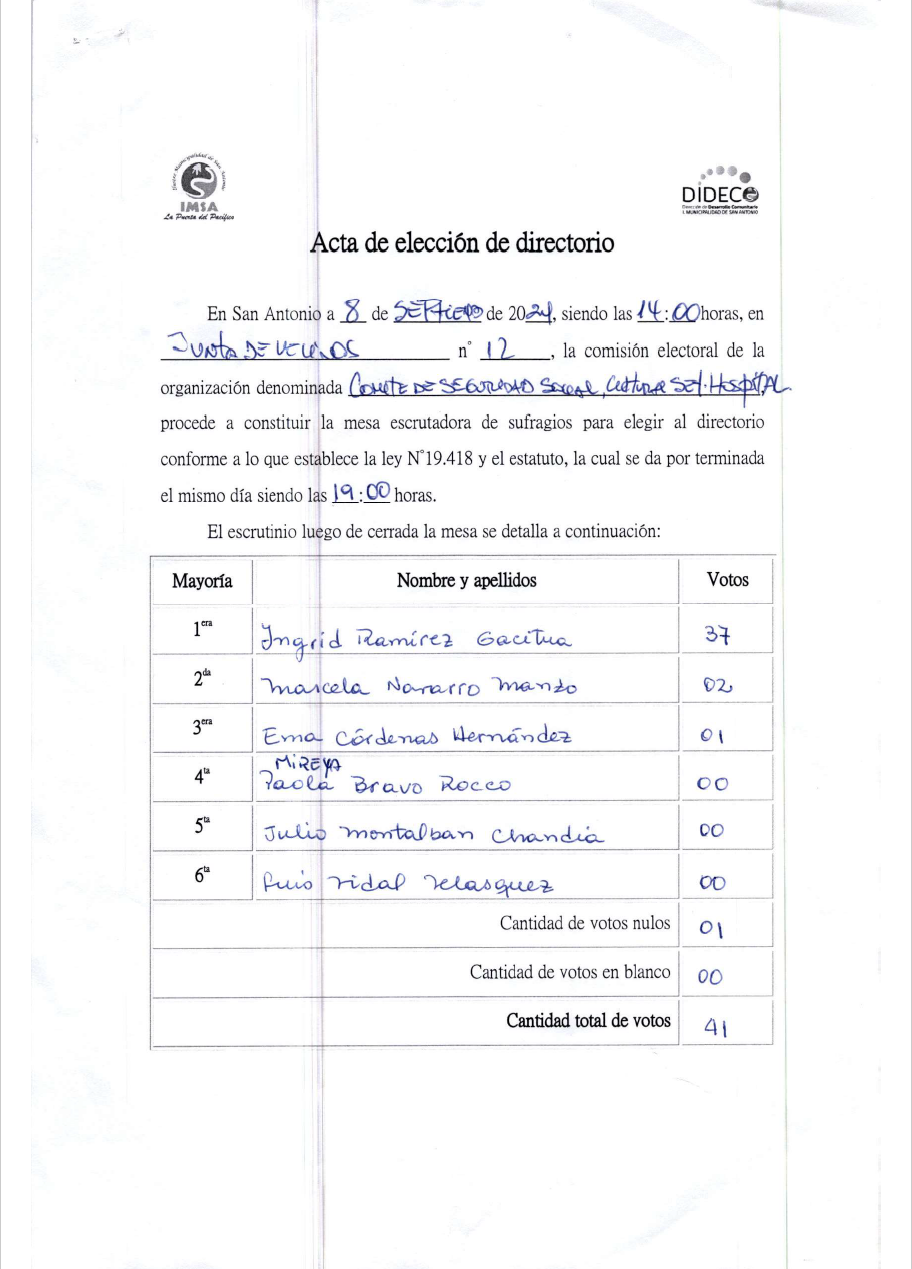 Ilustre Municipalidad de San Antonio
IMSA
La Puerta del Pacífico
DIDECO
Dirección de Desarrollo Comunitario
I. MUNICIPALIDAD DE SAN ANTONIO
Acta de elección de directorio
En San Antonio a 8 de SEPTIEMBRE de 2024, siendo las 14:00 horas, en
JUNTA DE VECINOS n° 12, la comisión electoral de la
organización denominada COMITE DE SEGURIDAD SOCIAL, CULTURAL SET. HOSPITAL
procede a constituir la mesa escrutadora de sufragios para elegir al directorio
conforme a lo que establece la ley N°19.418 y el estatuto, la cual se da por terminada
el mismo día siendo las 19:00 horas.
El escrutinio luego de cerrada la mesa se detalla a continuación:
Mayoría Nombre y apellidos Votos
1era Ingrid Ramírez Gacitua 37
2da Marcela Navarro Manzo 02
3era Ema Córdenas Hernández 01
MIREYA
4ta Paola Bravo Rocco 00
5ta Julio Montalban Chandia 00
6ta Luis Vidal Velasquez 00
Cantidad de votos nulos 01
Cantidad de votos en blanco 00
Cantidad total de votos 41